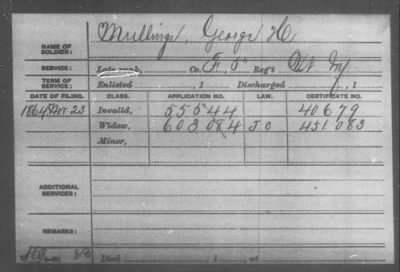 NAME OF SOLDIER: Mullings, George H
SERVICE: Late rank, Co. F, 5" Reg't Inf
TERM OF SERVICE: Enlisted , 1 Discharged , 1
DATE OF FILING. CLASS. APPLICATION NO. LAW. CERTIFICATE NO.
1864 Nov. 23 Invalid, 55544 40679
Widow, 603084 451083
Minor,
ADDITIONAL SERVICES:
REMARKS:
Died , 1 , at